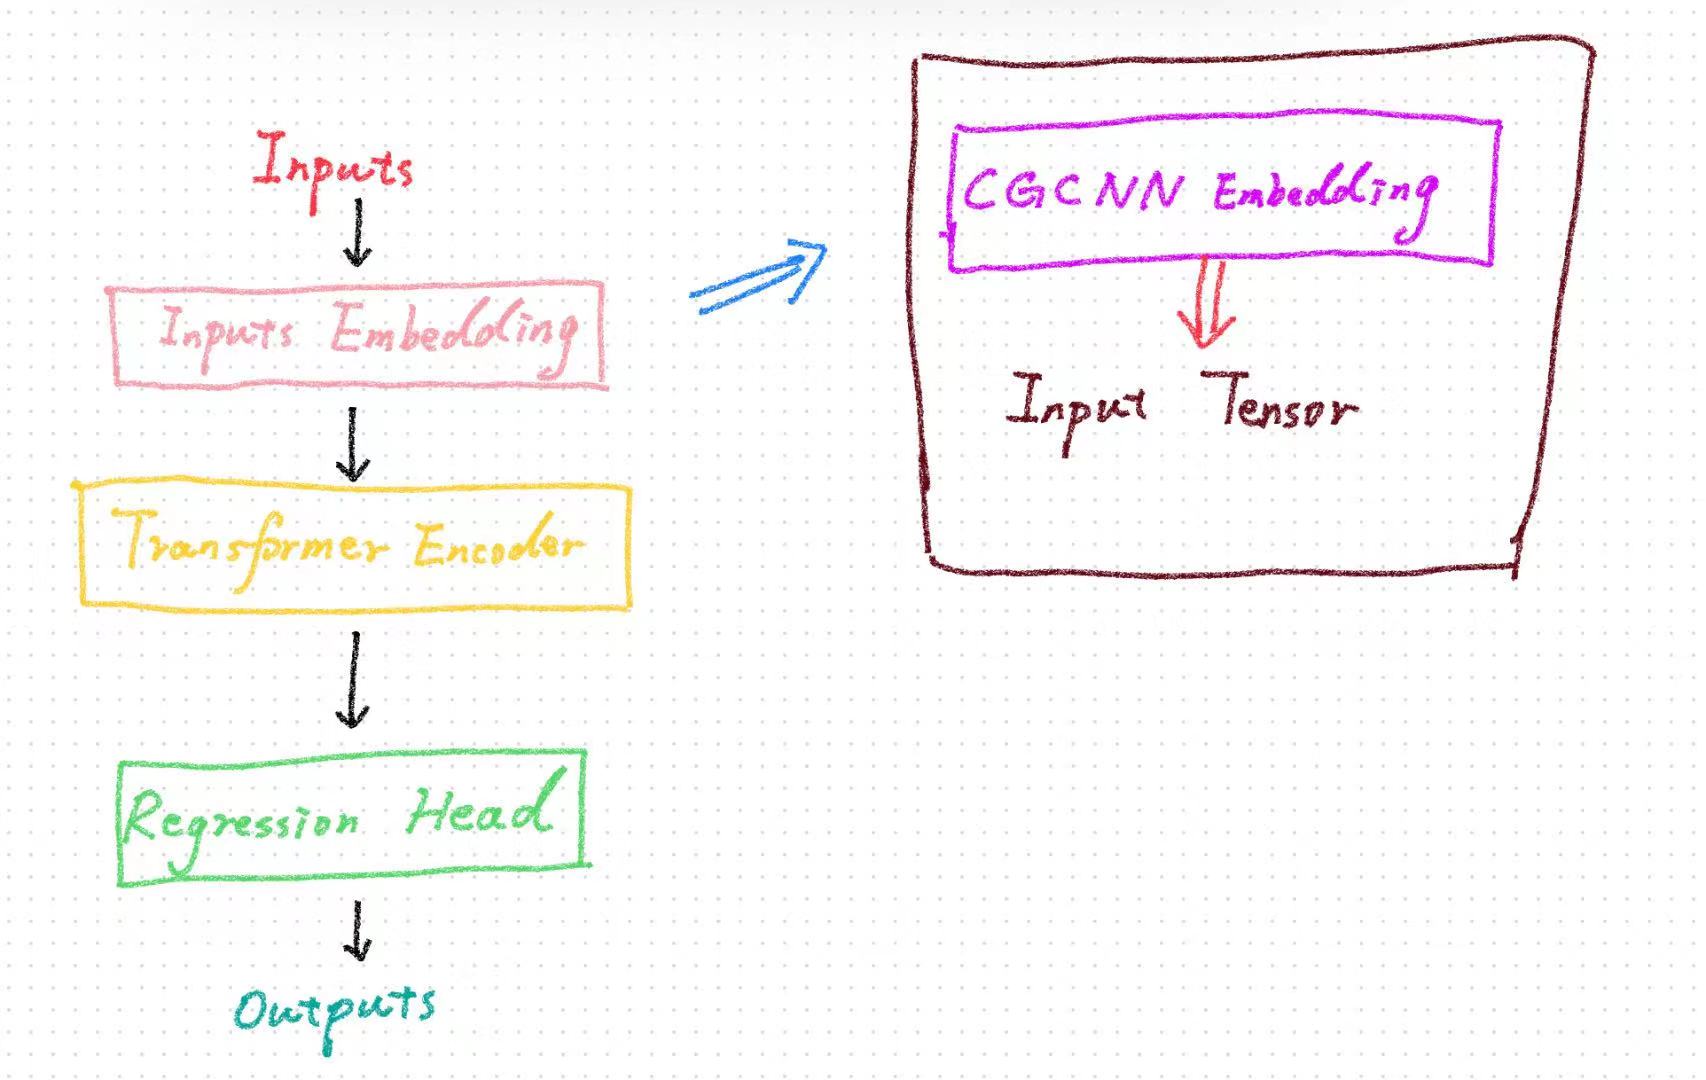 Inputs
Inputs Embedding
Transformer Encoder
Regression Head
Outputs
CGCNN Embedding
Input Tensor